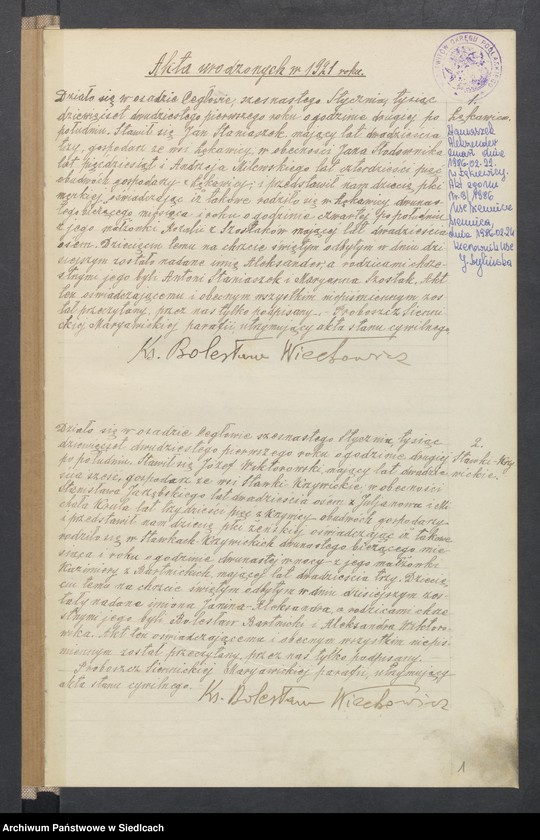 Akta urodzonych w 1921 roku.
Działo się w osadzie Cegłowie, szesnastego Stycznia, tysiąc
dziewięćset dwudziestego pierwszego roku o godzinie drugiej po
południu. Stawił się Jan Staniaszek mający lat dwadzieścia
trzy, gospodarz ze wsi Łękawicy, w obecności Jana Słodownika
lat pięćdziesiąt i Andrzeja Milewskiego lat czterdzieści pięć
obudwóch gospodarzy z Łękawicy; i przedstawił nam dziecię płci
męzkiej oświadczając iż takowe rodziło się w Łękawicy dwunas-
tego bieżącego miesiąca i roku o godzinie czwartej po południu
z jego małżonki Rozalii z Szostaków mającej lat dwadzieścia
osiem. Dziecięciu temu na chrzcie świętym odbytym w dniu dzi-
siejszym zostało nadane imię Aleksander, a rodzicami chrze-
stnymi jego byli Antoni Staniaszek i Maryanna Szostak. Akt
ten oświadczającemu i obecnym wszystkim niepiśmiennym zos-
tał przeczytany, przez nas tylko podpisany. - Proboszcz Sienni-
ckiej Maryawickiej parafii utrzymujący akta stanu cywilnego
Ks. Bolesław Wiechowicz
1.
Łękawica.
Staniaszek
Aleksander
zmarł dnia
1986-02-22
w Łękawicy.
Akt zgonu
Nr. 8/1986
USC Siennica
Siennica,
dnia 1986.02.24
Kierownik USC
Działo się w osadzie Cegłowie szesnastego Stycznia, tysiąc
dziewięćset dwudziestego pierwszego roku o godzinie drugiej
po południu. Stawił się Józef Wiktorowski, mający lat dwadzie-
ścia sześć, gospodarz ze wsi Sławki-Krzywickie, w obecności
Stanisława Jarzębskiego lat dwadzieścia osiem z Juljanowa i Mi-
chała Kinula lat trzydzieści pięć z Krzywicy - obudwóch gospodarzy
i przedstawił nam dziecię płci żeńskiej oświadczając iż takowe
rodziło się w Sławkach Krzywickich dwunastego bieżącego mie-
siąca i roku o godzinie dwunastej w nocy - z jego małżonki
Kazimiery z Bartnickich, mającej lat dwadzieścia trzy. Dziecię-
ciu temu na chrzcie świętym odbytym w dniu dzisiejszym zos-
tały nadane imiona Janina-Aleksandra, a rodzicami chrze-
stnymi jego byli Bolesław Bartnicki i Aleksandra Wiktoro-
wska. Akt ten oświadczającemu i obecnym wszystkim niepiś-
miennym został przeczytany, przez nas tylko podpisany. -
- Proboszcz Siennickiej Maryawickiej parafii, utrzymujący
akta stanu cywilnego. Ks. Bolesław Wiechowicz
2.
Sławki-Krzy-
wickie.
1
Archiwum Państwowe w Siedlcach